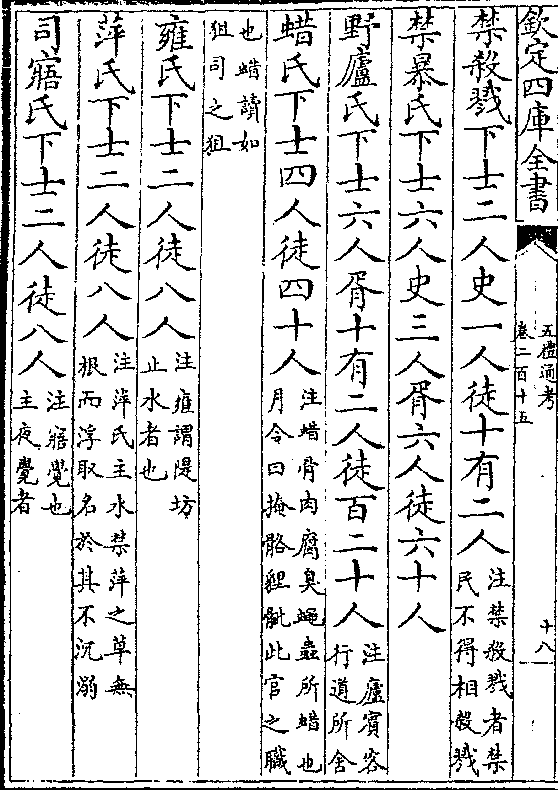 欽定四庫全書
五禮通考
卷二百十五
十八
禁殺戮下士二人史一人徒十有二人注禁殺戮者禁民不得相殺戮
禁暴氏下士六人史三人胥六人徒六十人
野廬氏下士六人胥十有二人徒百二十人注廬賓客行道所舍
蜡氏下士四人徒四十人注蜡骨肉腐臭蠅蟲所蜡也月令曰掩骼貍骴此官之職
也蜡讀如狙司之狙
雍氏下士二人徒八人注雍謂隄坊止水者也
萍氏下士二人徒八人注萍氏主水禁萍之草無根而浮取名於其不沉溺
司寤氏下士二人徒八人注寤覺也主夜覺者